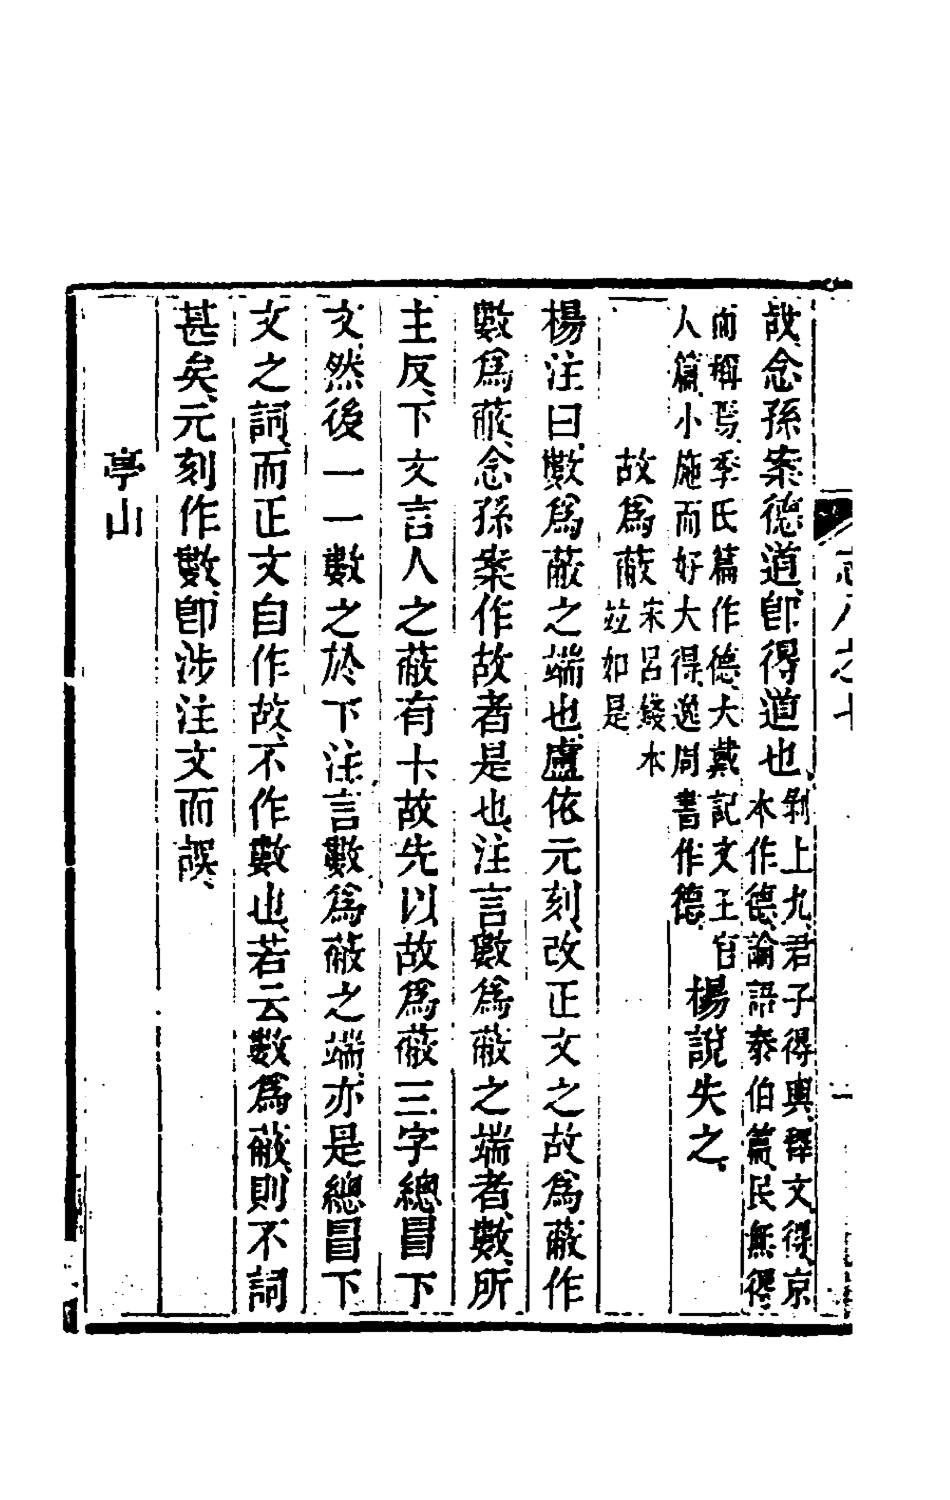 志八之七
一
故、念孫案德道、卽得道也、剝上九、君子得輿、釋文得、京
本作德、論語泰伯篇、民無得
而稱焉、季氏篇作德、大戴記文王官
人篇、小施而好大得、逸周書作德、楊說失之、
故爲蔽宋呂錢本
竝如是
楊注曰、數爲蔽之端也、盧依元刻、改正文之故爲蔽作
數爲蔽、念孫案作故者是也、注言數爲蔽之端者、數、所
主反、下文言人之蔽有十、故先以故爲蔽三字總冒下
文、然後一一數之於下、注言數爲蔽之端、亦是總冒下
文之詞、而正文自作故、不作數也、若云數爲蔽、則不詞
甚矣、元刻作數、卽涉注文而誤、
亭山